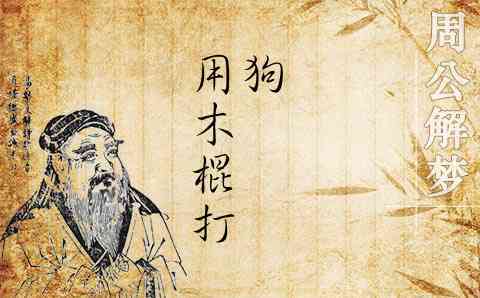 周公解梦
狗
用木棍打